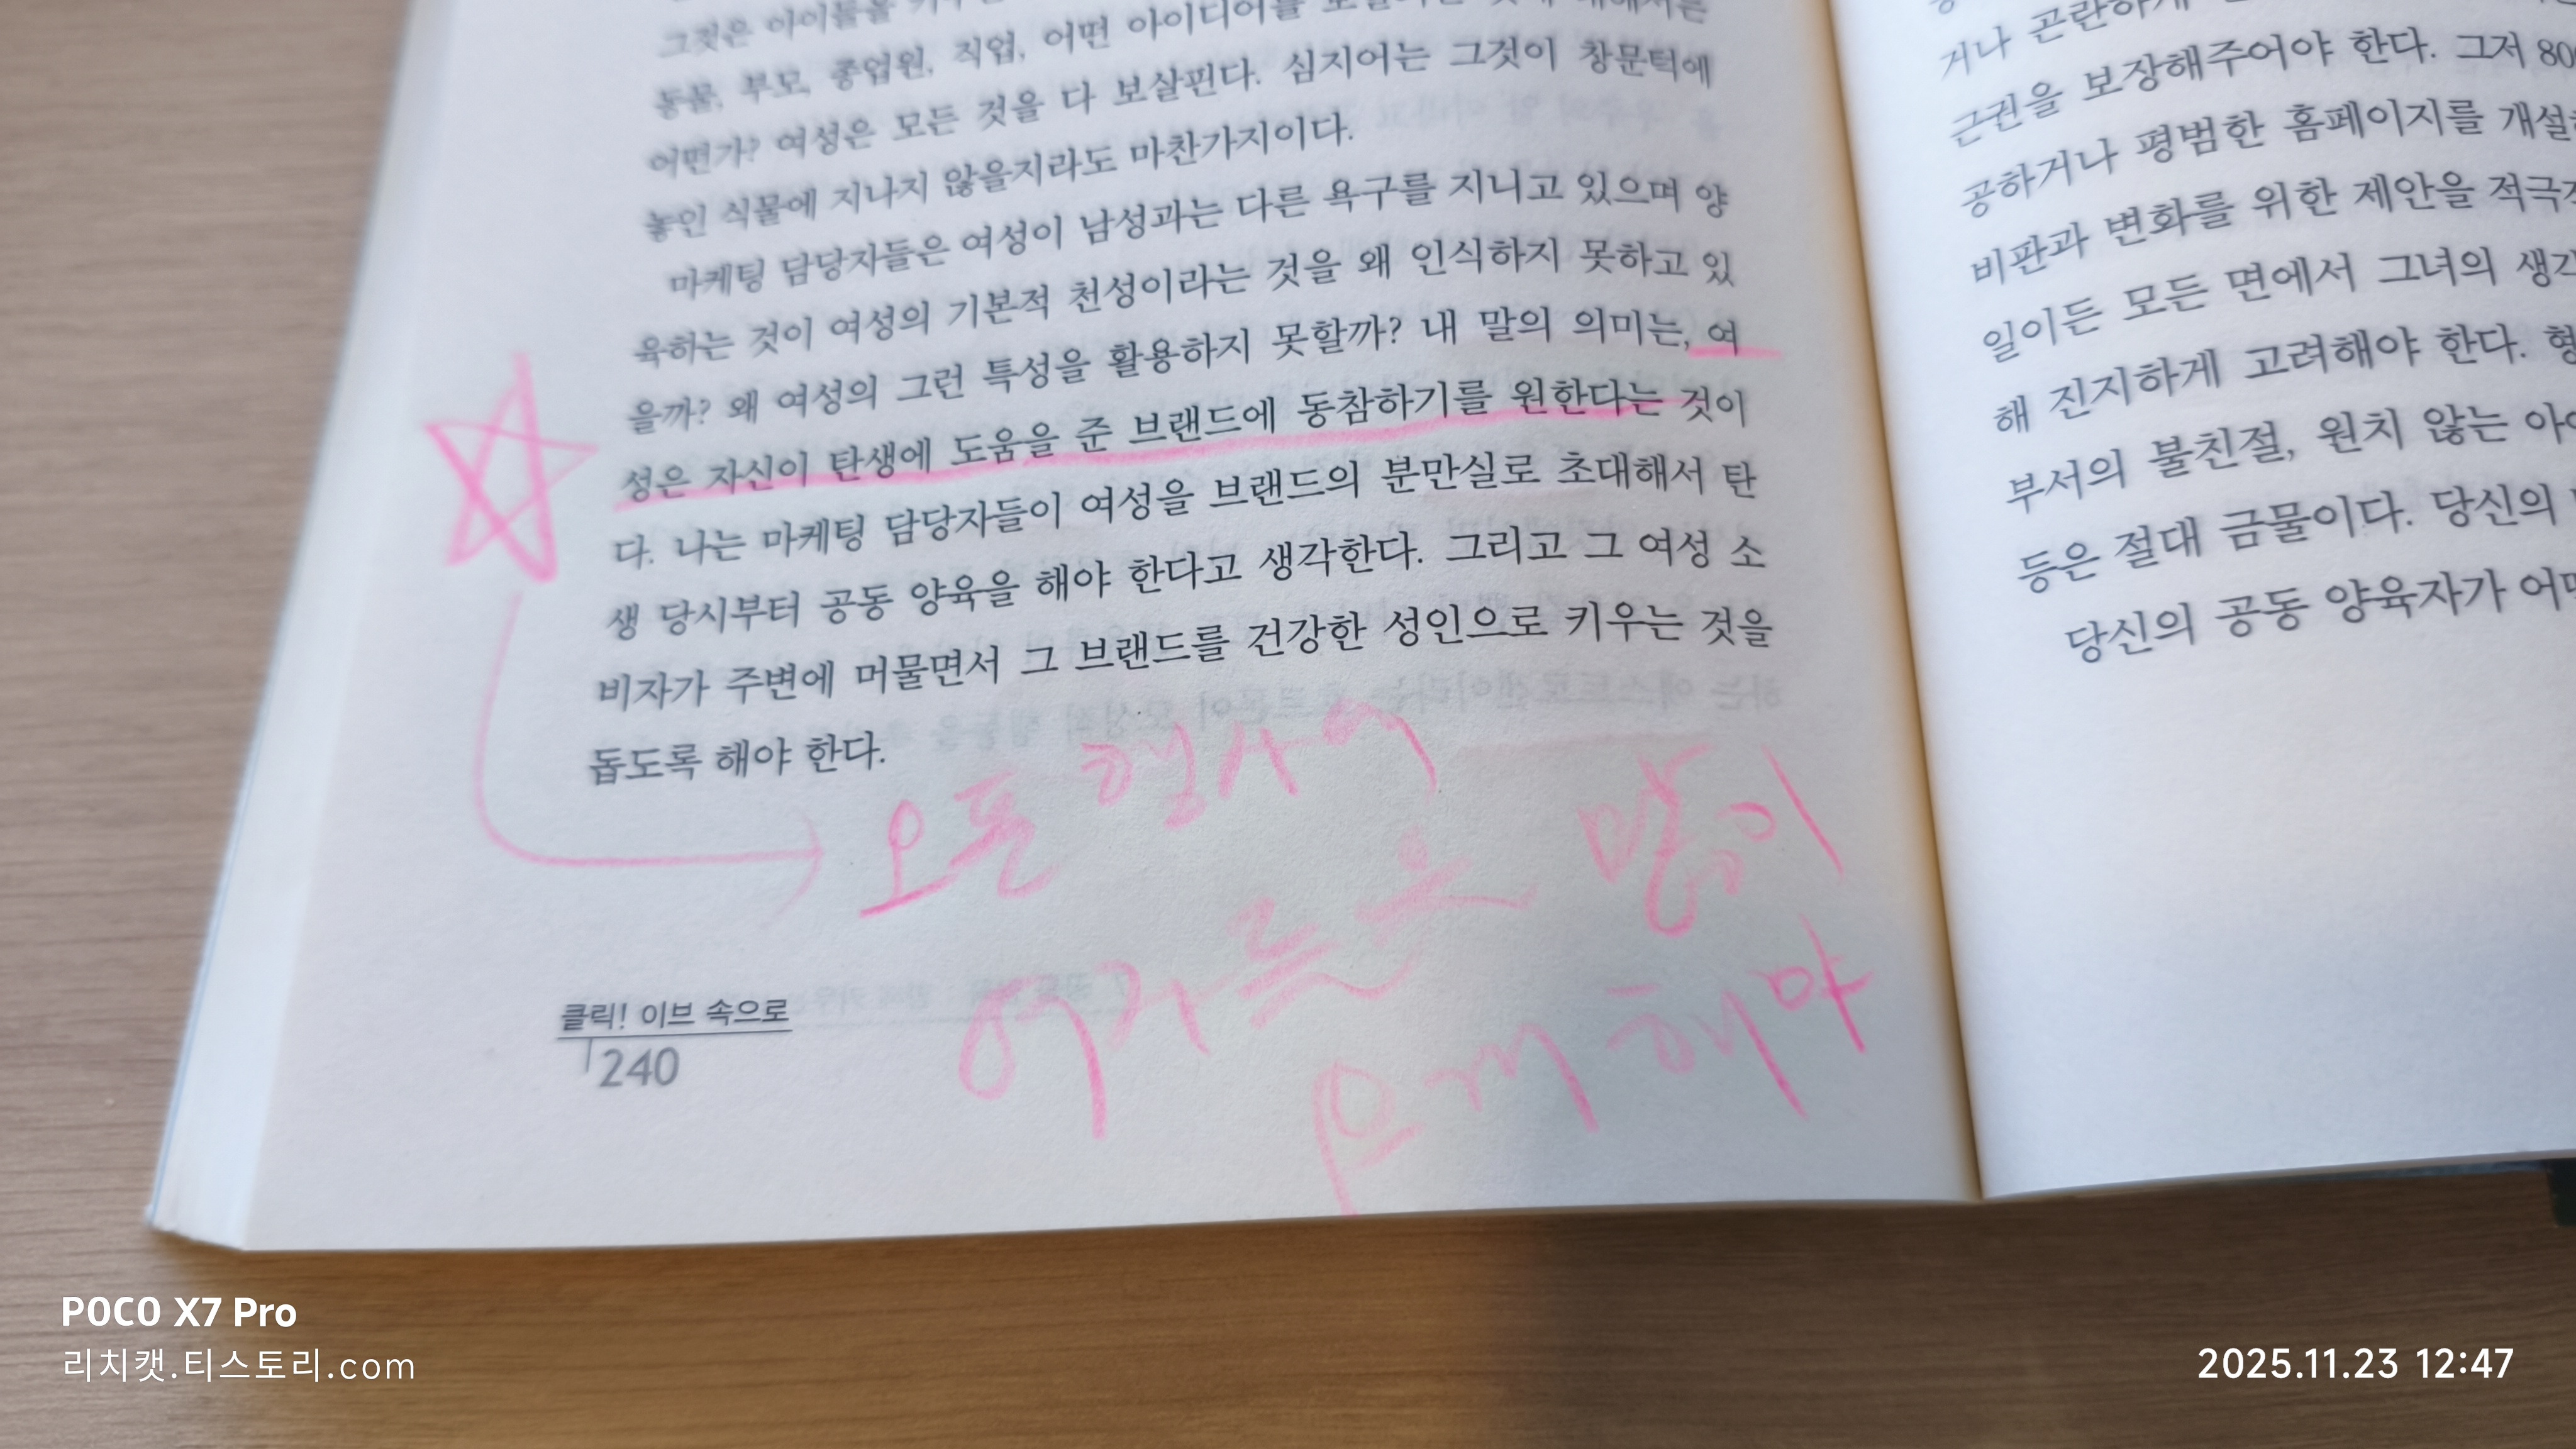 그것은 아이들을
동물, 부모, 종업원, 직업, 어떤 아이디어를
어떤가? 여성은 모든 것을 다 보살핀다. 심지어는 그것이 창문턱에
놓인 식물에 지나지 않을지라도 마찬가지이다.
마케팅 담당자들은 여성이 남성과는 다른 욕구를 지니고 있으며 양
육하는 것이 여성의 기본적 천성이라는 것을 왜 인식하지 못하고 있
을까? 왜 여성의 그런 특성을 활용하지 못할까? 내 말의 의미는, 여
성은 자신이 탄생에 도움을 준 브랜드에 동참하기를 원한다는 것이
다. 나는 마케팅 담당자들이 여성을 브랜드의 분만실로 초대해서 탄
생 당시부터 공동 양육을 해야 한다고 생각한다. 그리고 그 여성 소
비자가 주변에 머물면서 그 브랜드를 건강한 성인으로 키우는 것을
돕도록 해야 한다.
오픈 행사에
여자들은 많이
해야
클릭! 이브 속으로
240
거나 곤란하게
근권을 보장해주어야 한다. 그저 80
공하거나 평범한 홈페이지를 개설
비판과 변화를 위한 제안을 적극
일이든 모든 면에서 그녀의 생
해 진지하게 고려해야 한다.
부서의 불친절, 원치 않는
등은 절대 금물이다. 당신의
당신의 공동 양육자가
POCO X7 Pro
리치캣.티스토리.com
2025.11.23 12:47